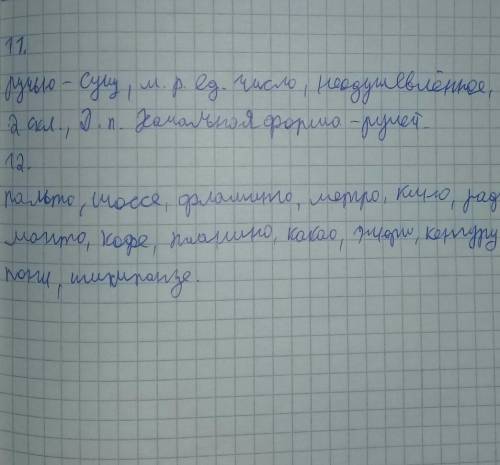 11.
ручью - сущ, м. р. ед. число, неодушевлённое,
2 скл., Д. п. Начальная форма - ручей.
12.
пальто, шоссе, фламинго, метро, кино, рад
манто, кофе, пианино, какао, жюри, кенгуру
пони, шимпанзе.